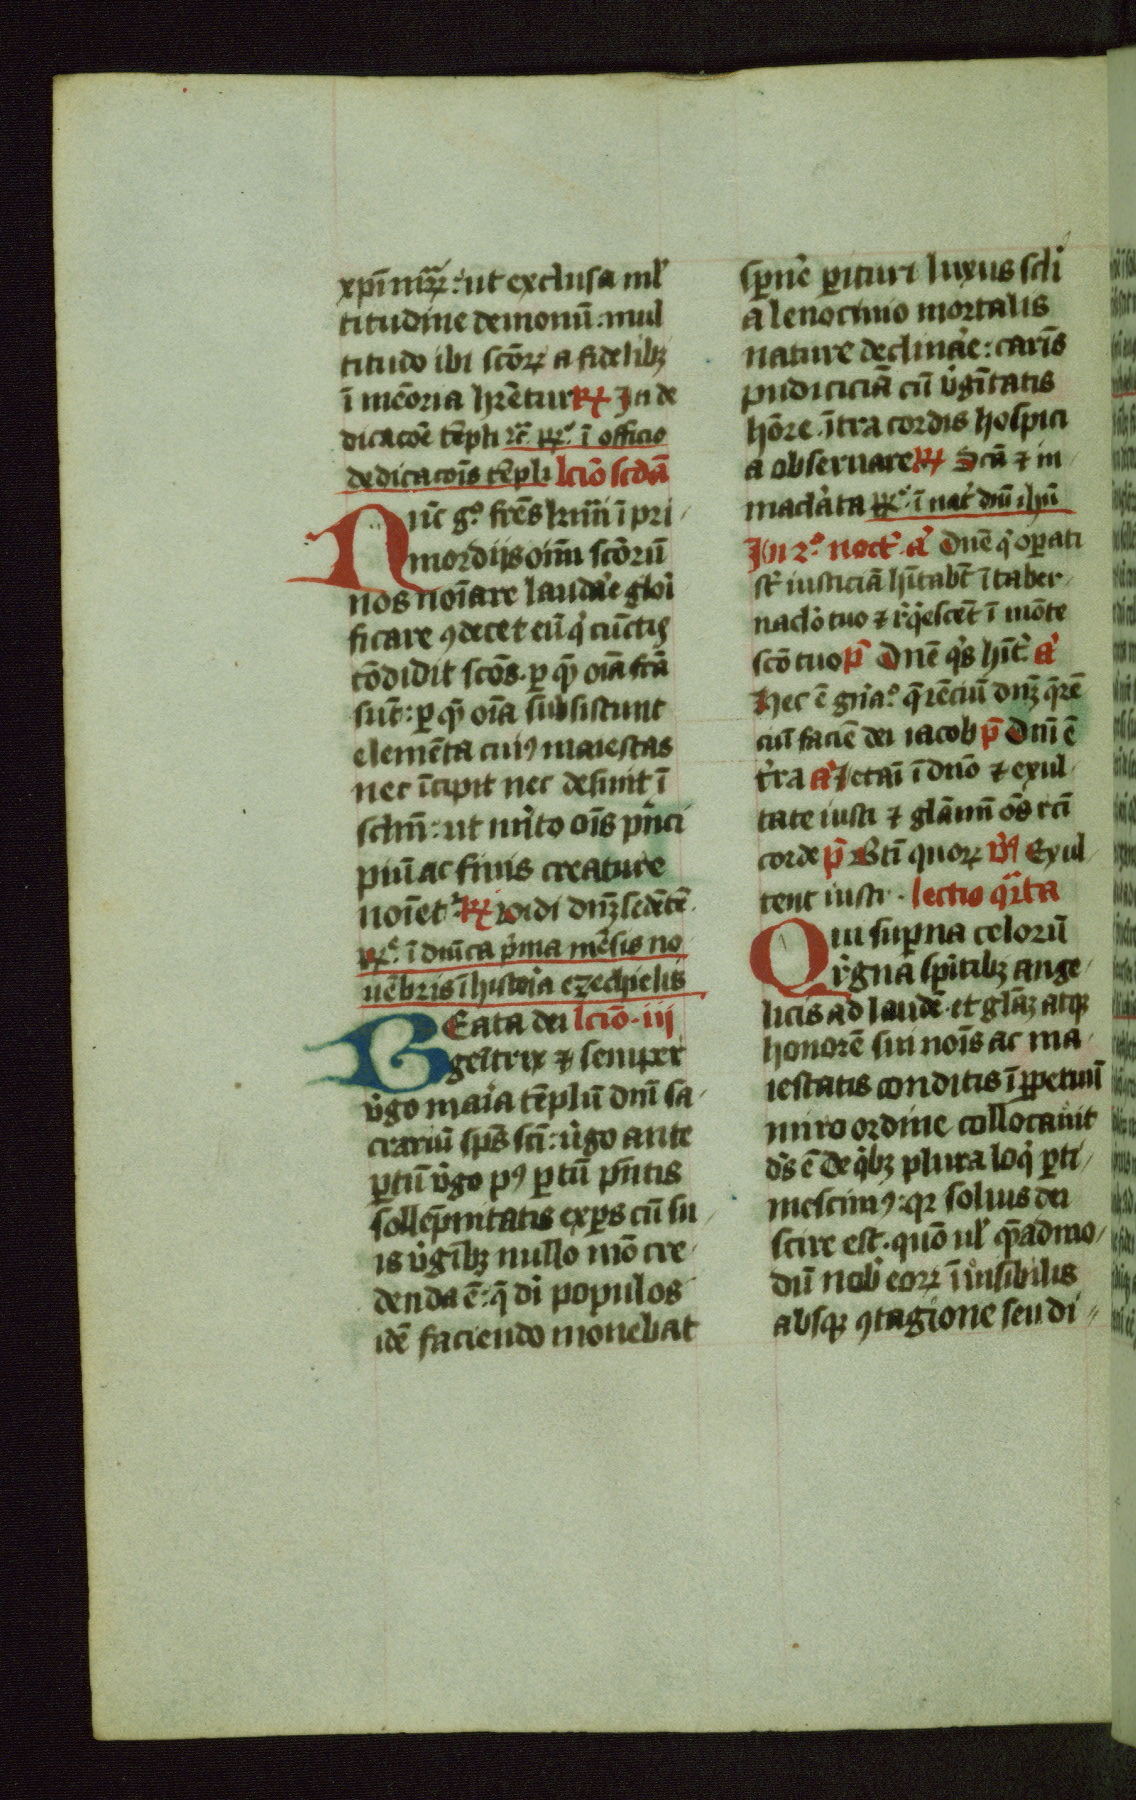 xpī mr̄ꝝ: ut exclusa ml̾
titudine demonū: mul
titudo ibi scōꝝ a fidelibꝫ
ī mēoria hr̄etur R̸ In de
dicacōe tēpli rc̄ R̸º ī officio
dedicacōis tēpli lciō scdā
Nūc gº frēs krm̄i ī pri
mordijs oīm scōrū
nos noīare laudar̾e glori
ficare ꝯdecet eū q̾ cūctis
cōdidit scōs. ꝑ qm̄ oīa fcā
sūt: ꝑ qm̄ oīa subsistunt
elemēta cuiꝰ maiestas
nec īcipit nec desinit ī
sclm̄: ut mr̾ito oīs pͥnci
piū ac finis creature
noīetͬ R̸ vidi dnꝫ sedētē
R̸º ī dnīca pͥma mēsis no
uēbris ī historia ezechielis
BEata dei lciō · iij
geītrix ⁊ semper
v̾go maͬia tēplū dnī sa
crariū sps̄ scī: v̾go ante
ꝑtū v̾go pꝰ ꝑtū pn̄tis
sollēpnitatis expͬs cū su
is v̾gībꝫ nullo mō cre
denda ē: q̄ dī populos
idē faciendo monebat
spͬne̾ ꝑituri luxus scli
a lenocinio mortalis
nature declinar̾e: carīs
pudiciciā cū v̾gītatis
hōre ītra cordis hospici
a obseruare R̸ Scā ⁊ in
maclata R̸º ī nat̾ dnī ihū
In 2º noct̾ a̾ Dnē q̾ opͬati
st̄ iusticiā hītabt̄ ī taber
naclo̾ tuo ⁊ rͥq̾escēt ī mōte
scō tuo p̄ Dnē q̾s hīt̾ a̾
Hec ē gn̄aº q̄rēciū dnꝫ q̄rē
ciū faciē dei iacob p̄ Dnī ē
tr̾ra a̾ Letaī ī dnō ⁊ exul
tate iusti ⁊ glāmī oēs rcī
corde p̄ Btī quoꝝ v̾ꝰ Exul
tent iusti · lectio qr̄ta
Qui supͬna celorū
rͥgna spͥritibꝫ ange
licis ad laudē et glāꝫ atqꝫ
honorē sui noīs ac ma
iestatis conditis ī ꝑpetuū
miro ordine collocauit
ds̄ ē de q̾bꝫ plura loq̾ ꝑti
mescimꝰ: qꝛ soliꝰ dei
scire est. quō ul̾ qm̄admo
dū nob̾ eoꝝ īuisibilis
absqꝫ ꝯtagione seu di